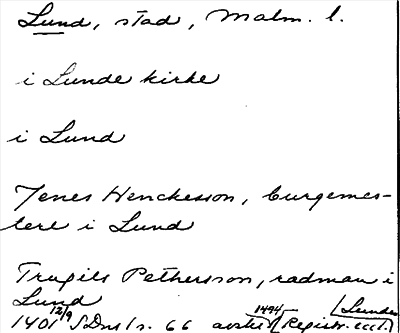 Lund, stad, Malm. l.
i Lunde kirke
i Lund
Jenes Henckesson, burgemes-
tere i Lund
Trugils Pethersson, radman i
Lund
1401 12/9 SDns 1 s. 66 avskr. 1494 (Registr. eccl. Lunden